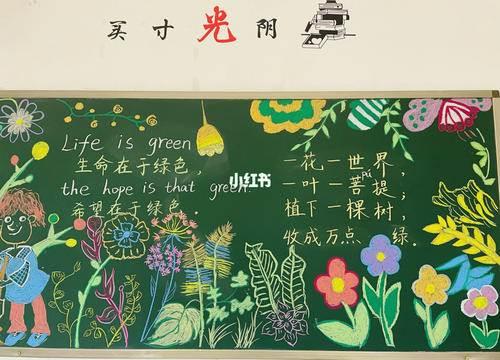 买寸光阴
Life is green
生命在于绿色，
the hope is that green.
希望在于绿色。
小红书
一花一世界，
一叶一菩提；
植下一棵树，
收成万点 绿.